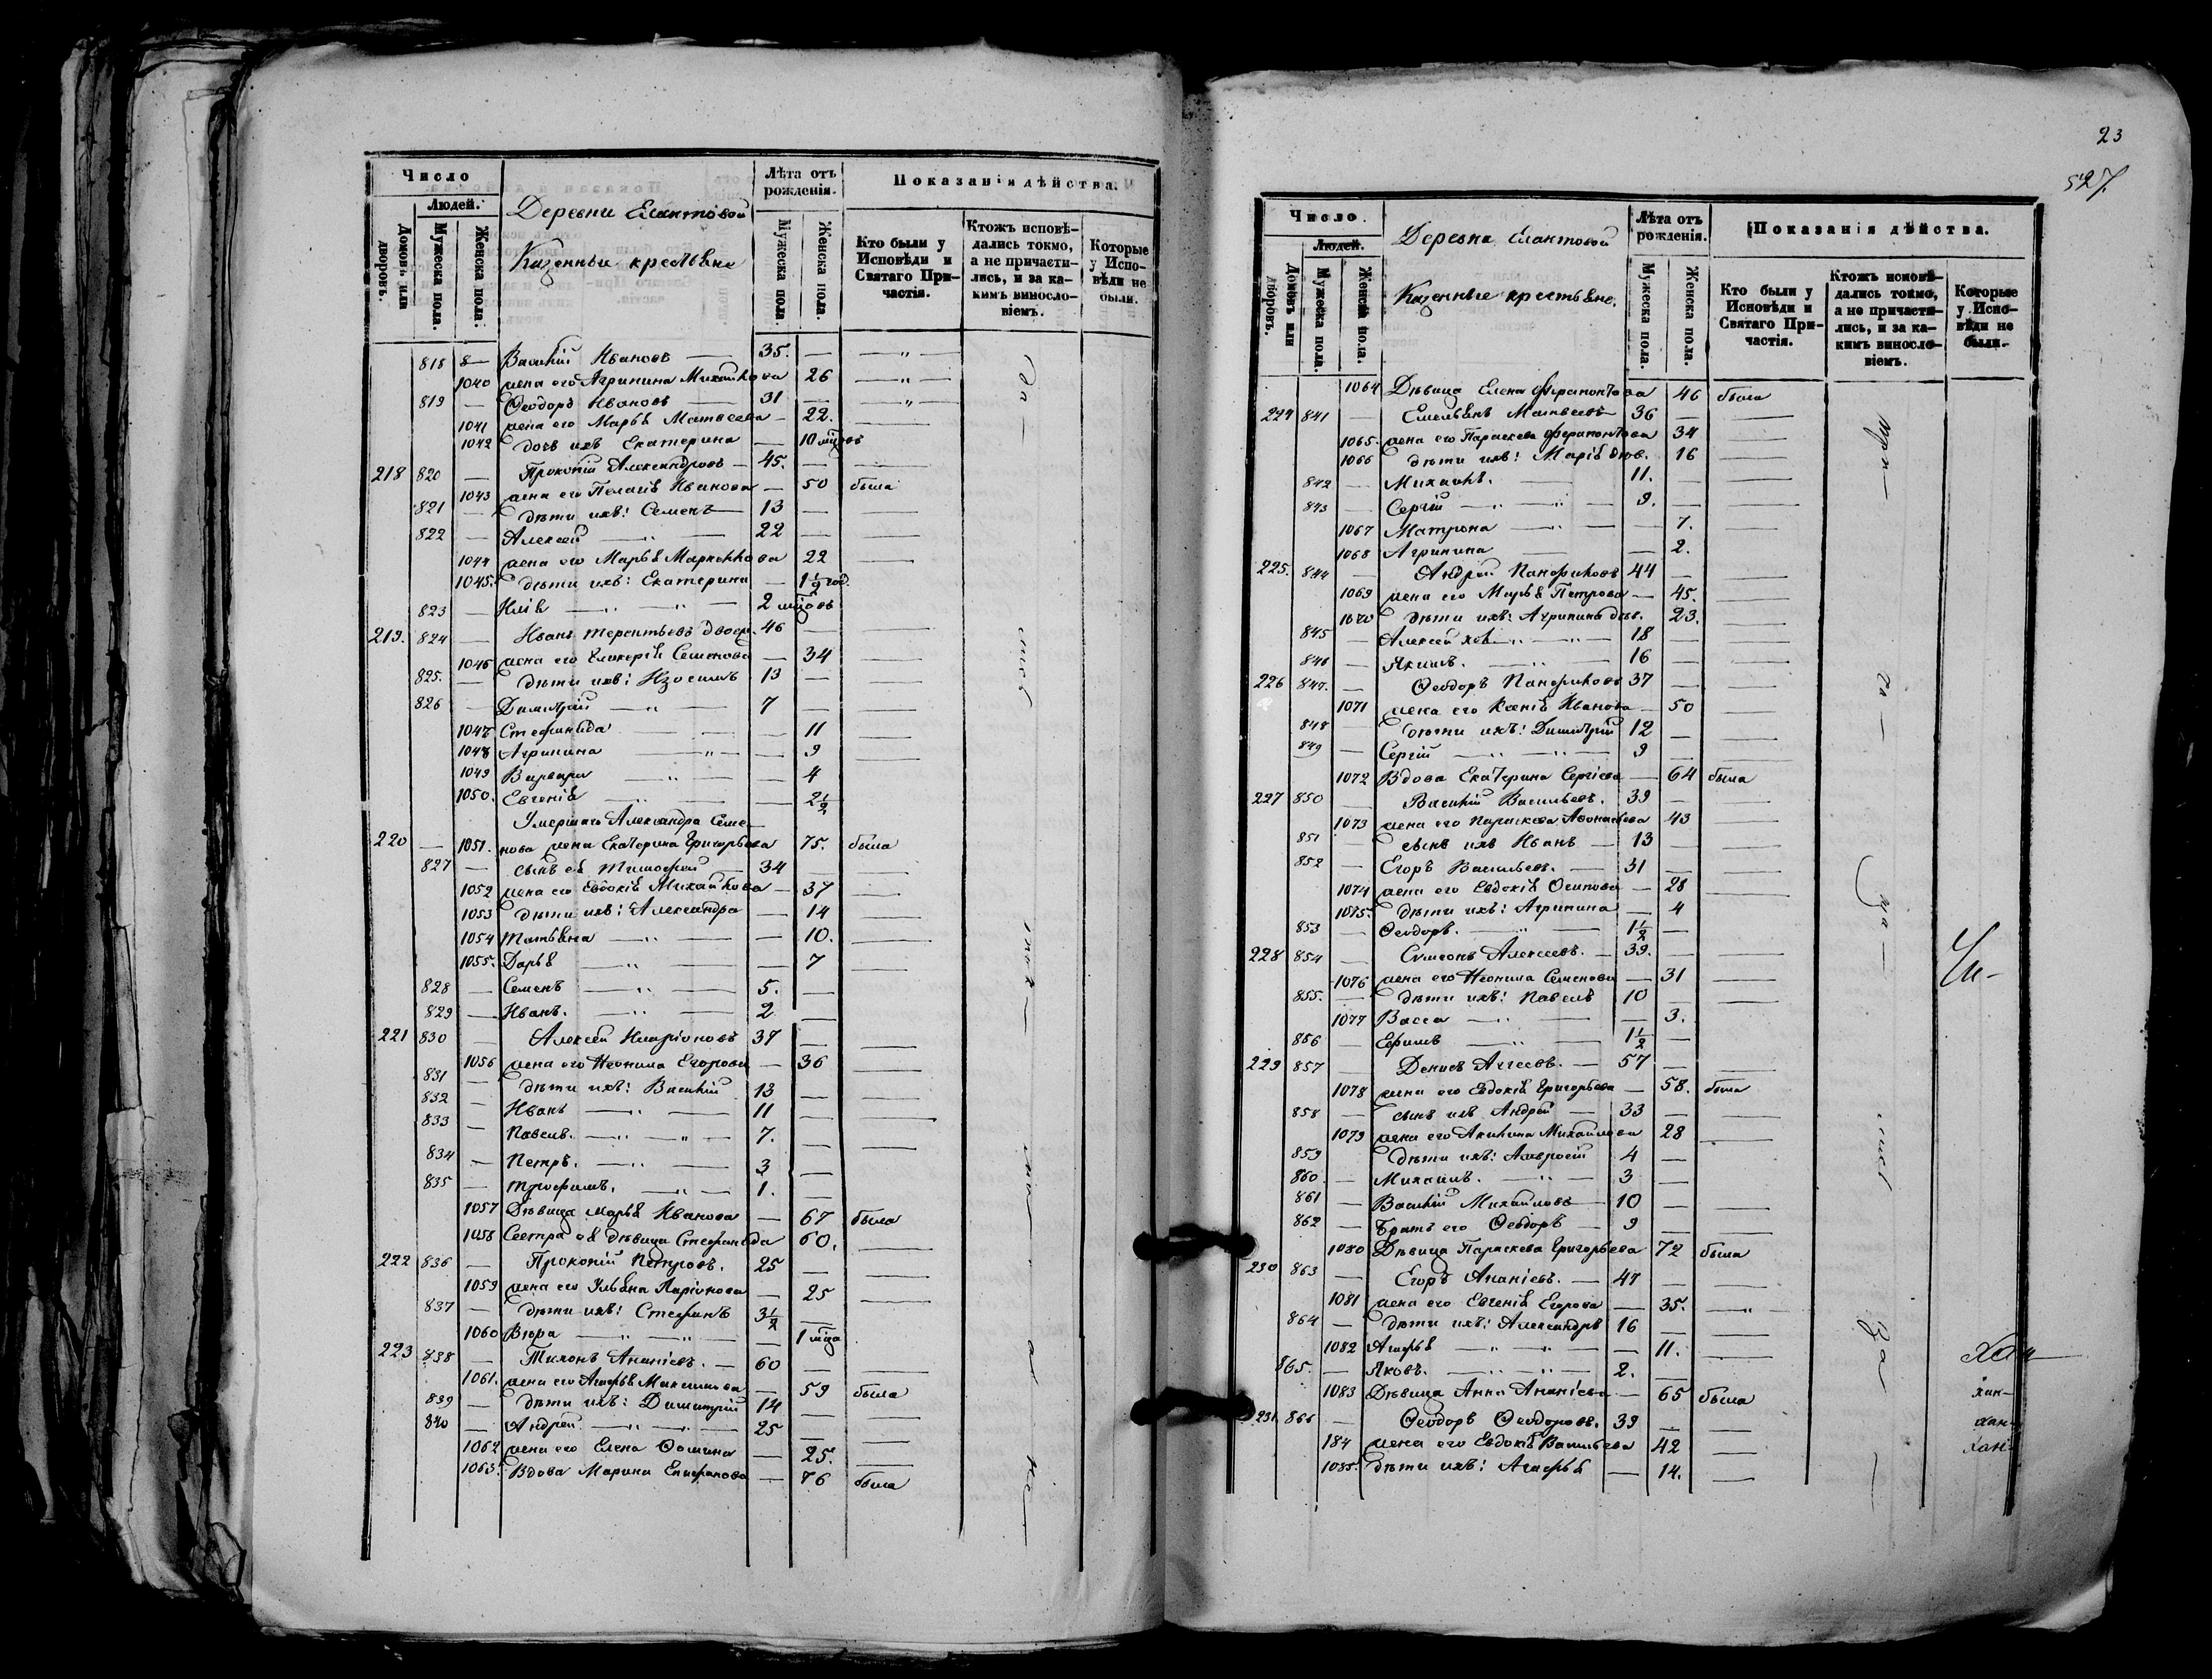 Число
Людей.
Домовъ или дворовъ.
Мужеска пола.
Женска пола.
Деревни Елантовой
Казенные крестьяне
Лѣта отъ рожденія.
Мужеска пола.
Женска пола.
Показанія дѣйства.
Кто были у Исповѣди и Святаго Причастія.
Ктожъ исповѣдались токмо, а не причастились, и за какимъ винословіемъ.
Которые у Исповѣди не были.
818 — Василій Ивановъ — 35. —
1040 жена его Агрипина Михайлова 26
819 — Ѳеодоръ Ивановъ — 31 —
1041 жена его Марья Матвеева — 22.
1042 дочь ихъ Екатерина — 10 мцовъ
218 820 — Прокопій Александровъ — 45. —
1043 жена его Пелагія Иванова — 50 была
821 — дѣти ихъ: Семенъ — 13 —
822 — Алексей — 22 —
1044 жена его Марья Маркелова 22
1045. дѣти ихъ: Екатерина — 1½ год.
823 — Илія — 2 мцовъ
219. 824 — Иванъ Терентьевъ двоед. 46 —
1046 жена его Гликерія Семенова — 34
825. — дѣти ихъ: Изосимъ 13 —
826 — Димитрій — 7 —
1047 Стефанида — 11
1048 Агрипина — 9
1049 Варвара — 4
1050. Евгенія — 2½
Умершаго Александра Семе-
220 — 1051. нова жена Екатерина Григорьева 75. была
827 — сынъ ея Тимофей — 34
1052 жена его Евдокія Михайлова — 37
1053 дѣти ихъ: Александра — 14
1054 Татьяна — 10.
1055. Дарья — 7
828 — Семенъ — 5. —
829 — Иванъ. — 2 —
221 830 — Алексей Иларіоновъ 37 —
1056 жена его Неонила Егорова — 36
831 — дѣти ихъ: Василій 13 —
832 — Иванъ — 11 —
833 — Павелъ. — 7. —
834 — Петръ. — 3 —
835 — Трофимъ. — 1. —
1057 Дѣвица Марья Иванова — 67 была
1058 Сестра ея дѣвица Стефанида 60.
222 836 — Прокопій Петровъ. 25 —
1059 жена его Ульяна Ларіонова — 25
837 — дѣти ихъ: Стефанъ 3½ —
1060 Вѣра — 1 мца
223 838 — Тихонъ Ананіевъ. — 60 —
1061. жена его Агафья Максимова — 59 была
839 — дѣти ихъ: Димитрій 14 —
840 — Андрей — 25 —
1062 жена его Елена Ѳомина — 25.
1063. Вдова Марина Епифанова — 76 была
23
527.
Число
Людей.
Домовъ или дворовъ.
Мужеска пола.
Женска пола.
Деревни Елантовой
Казенные крестьяне.
Лѣта отъ рожденія.
Мужеска пола.
Женска пола.
Показанія дѣйства.
Кто были у Исповѣди и Святаго Причастія.
Ктожъ исповѣдались токмо, а не причастились, и за какимъ винословіемъ.
Которые у Исповѣди не были.
1064 Дѣвица Елена Ферапонтова 46 была
224 841 — Емельянъ Матвеевъ 36 —
1065. жена его Параскева Ферапонтова 34
1066 дѣти ихъ: Марія дѣв. 16
842 — Михаилъ. — 11. —
843 — Сергій — 9. —
1067 Матрона — 7.
1068 Агрипина — 2.
225. 844 — Андрей Панфиловъ 44 —
1069 жена его Марья Петрова — 45.
1070 дѣти ихъ: Агрипина дѣв. 23.
845 — Алексей — 18
846 — Якимъ. — 16 —
226 847. — Ѳеодоръ Панфиловъ 37 —
1071 жена его Ксенія Иванова — 50
848 — дѣти ихъ: Димитрій 12 —
849 — Сергій — 9 —
1072 Вдова Екатерина Сергіева — 64 была
227 850 — Василій Васильевъ. 39 —
1073 жена его Параскева Афонасьева 43
851 — сынъ ихъ Иванъ — 13 —
852 — Егоръ Васильевъ. — 31 —
1074 жена его Евдокія Осипова — 28
1075. дѣти ихъ: Агрипина — 4
853 — Ѳеодоръ. — 1½ —
228 854 — Симеонъ Алексеевъ. — 39. —
1076 жена его Неонила Семенова — 31
855. — дѣти ихъ: Павелъ 10 —
1077 Васса — 3.
856 — Ефимъ — 1½ —
229 857 — Денисъ Аггеевъ. — 57 —
1078 жена его Евдокія Григорьева — 58. была
858 — сынъ ихъ Андрей — 33 —
1079 жена его Акилина Михайлова 28
859 — дѣти ихъ: Амвросій 4 —
860. — Михаилъ. — 3 —
861 — Василій Михайловъ — 10 —
862 — Братъ его Ѳеодоръ — 9 —
1080 Дѣвица Параскева Григорьева 72 была
230 863 — Егоръ Ананіевъ. — 47 —
1081 жена его Евгенія Егорова — 35.
864 — дѣти ихъ: Александръ 16 —
1082 Агафья — 11.
865. — Яковъ. — 2. —
1083 Дѣвица Анна Ананіева — 65 была
231. 866 — Ѳеодоръ Ѳеодоровъ. 39 —
184 жена его Евдокія Васильева 42
1085. дѣти ихъ: Агафья — 14.